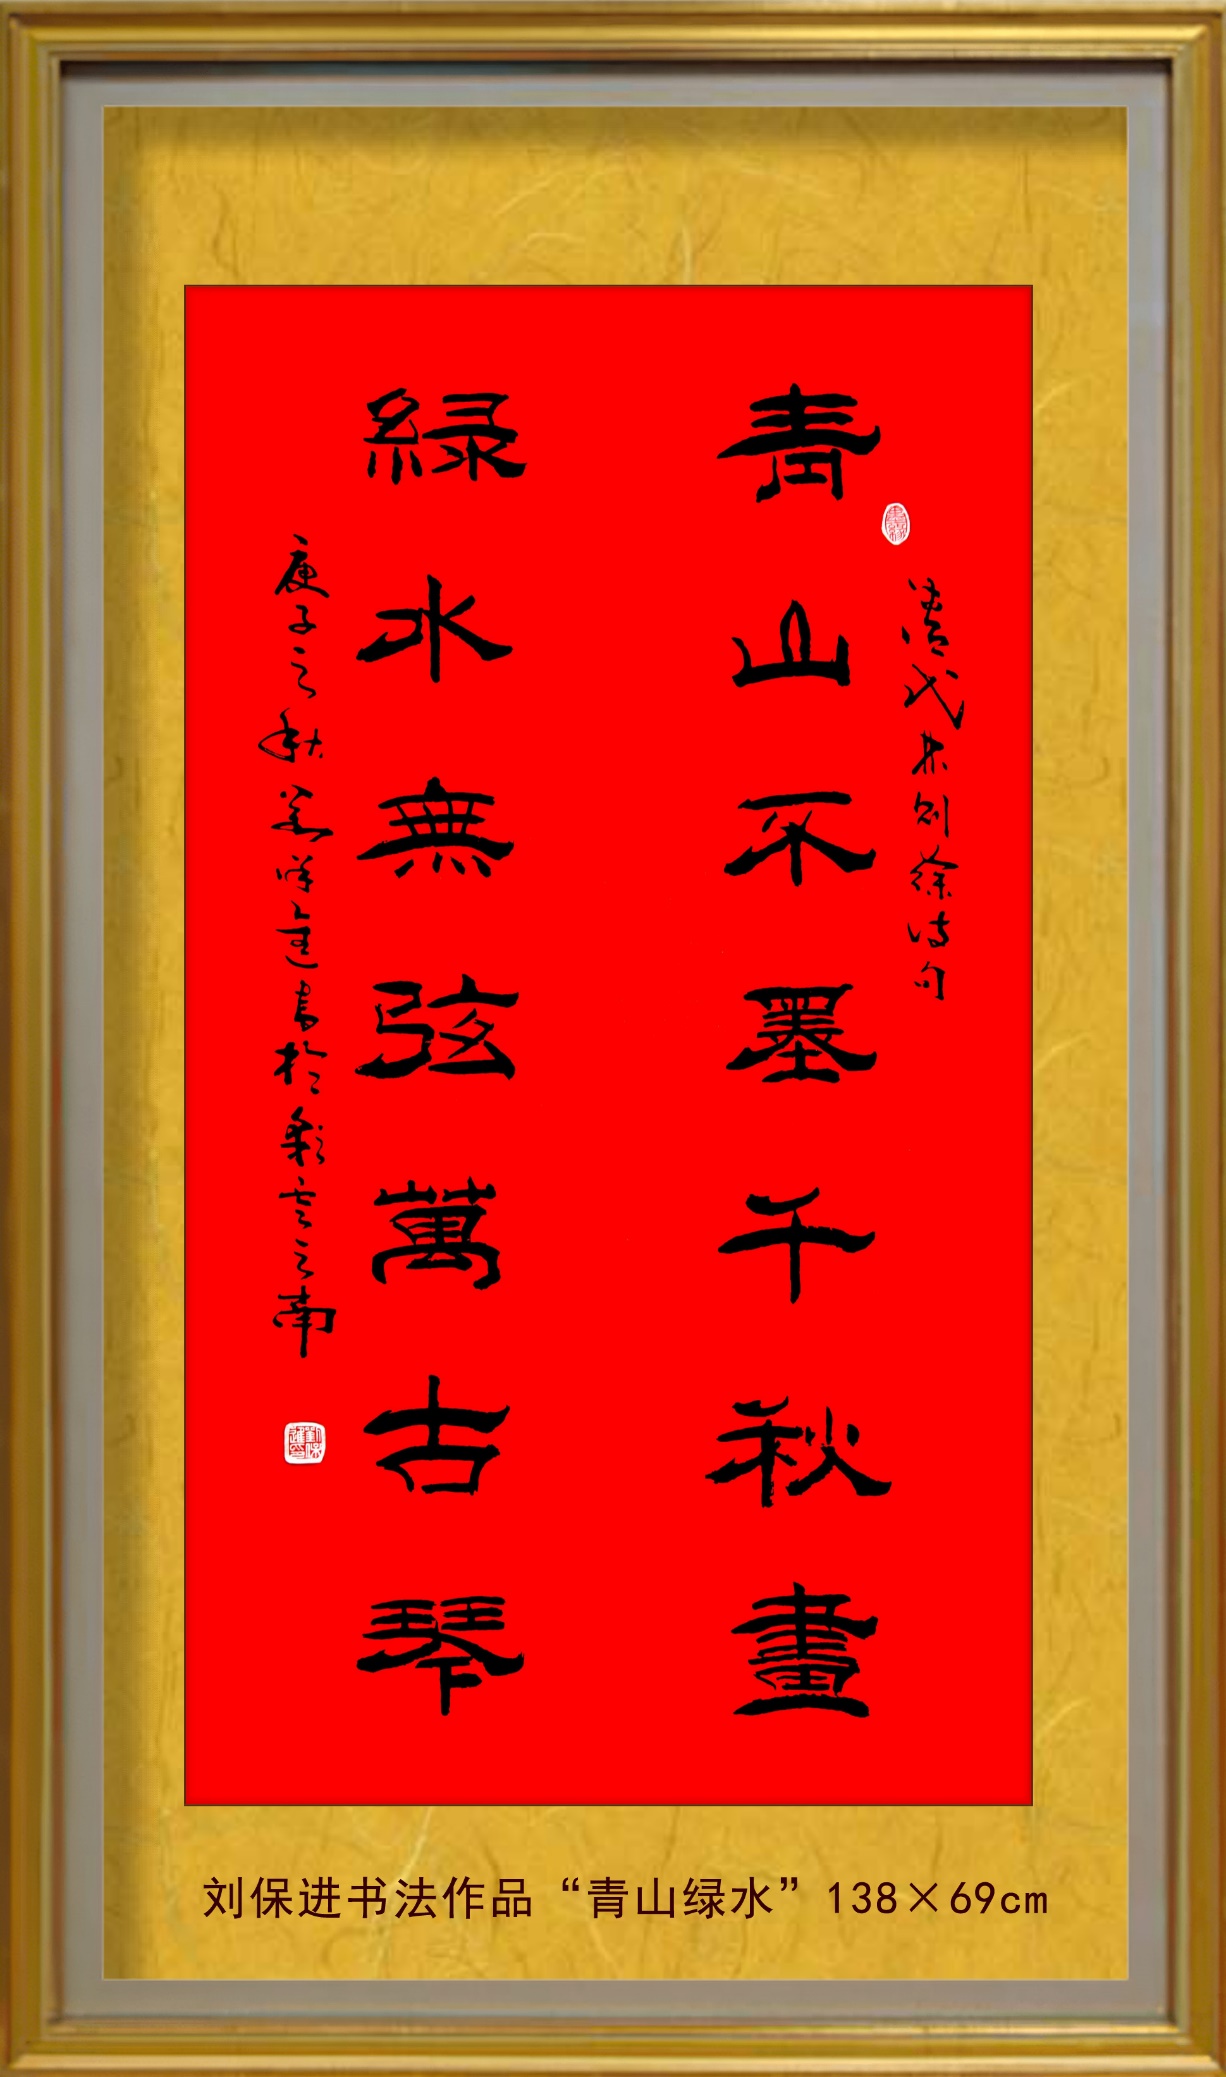 青山不墨千秋畫
清代林则徐诗句
綠水無弦萬古琴
庚子之秋
書於彩雲之南
刘保进书法作品“青山绿水”138×69cm